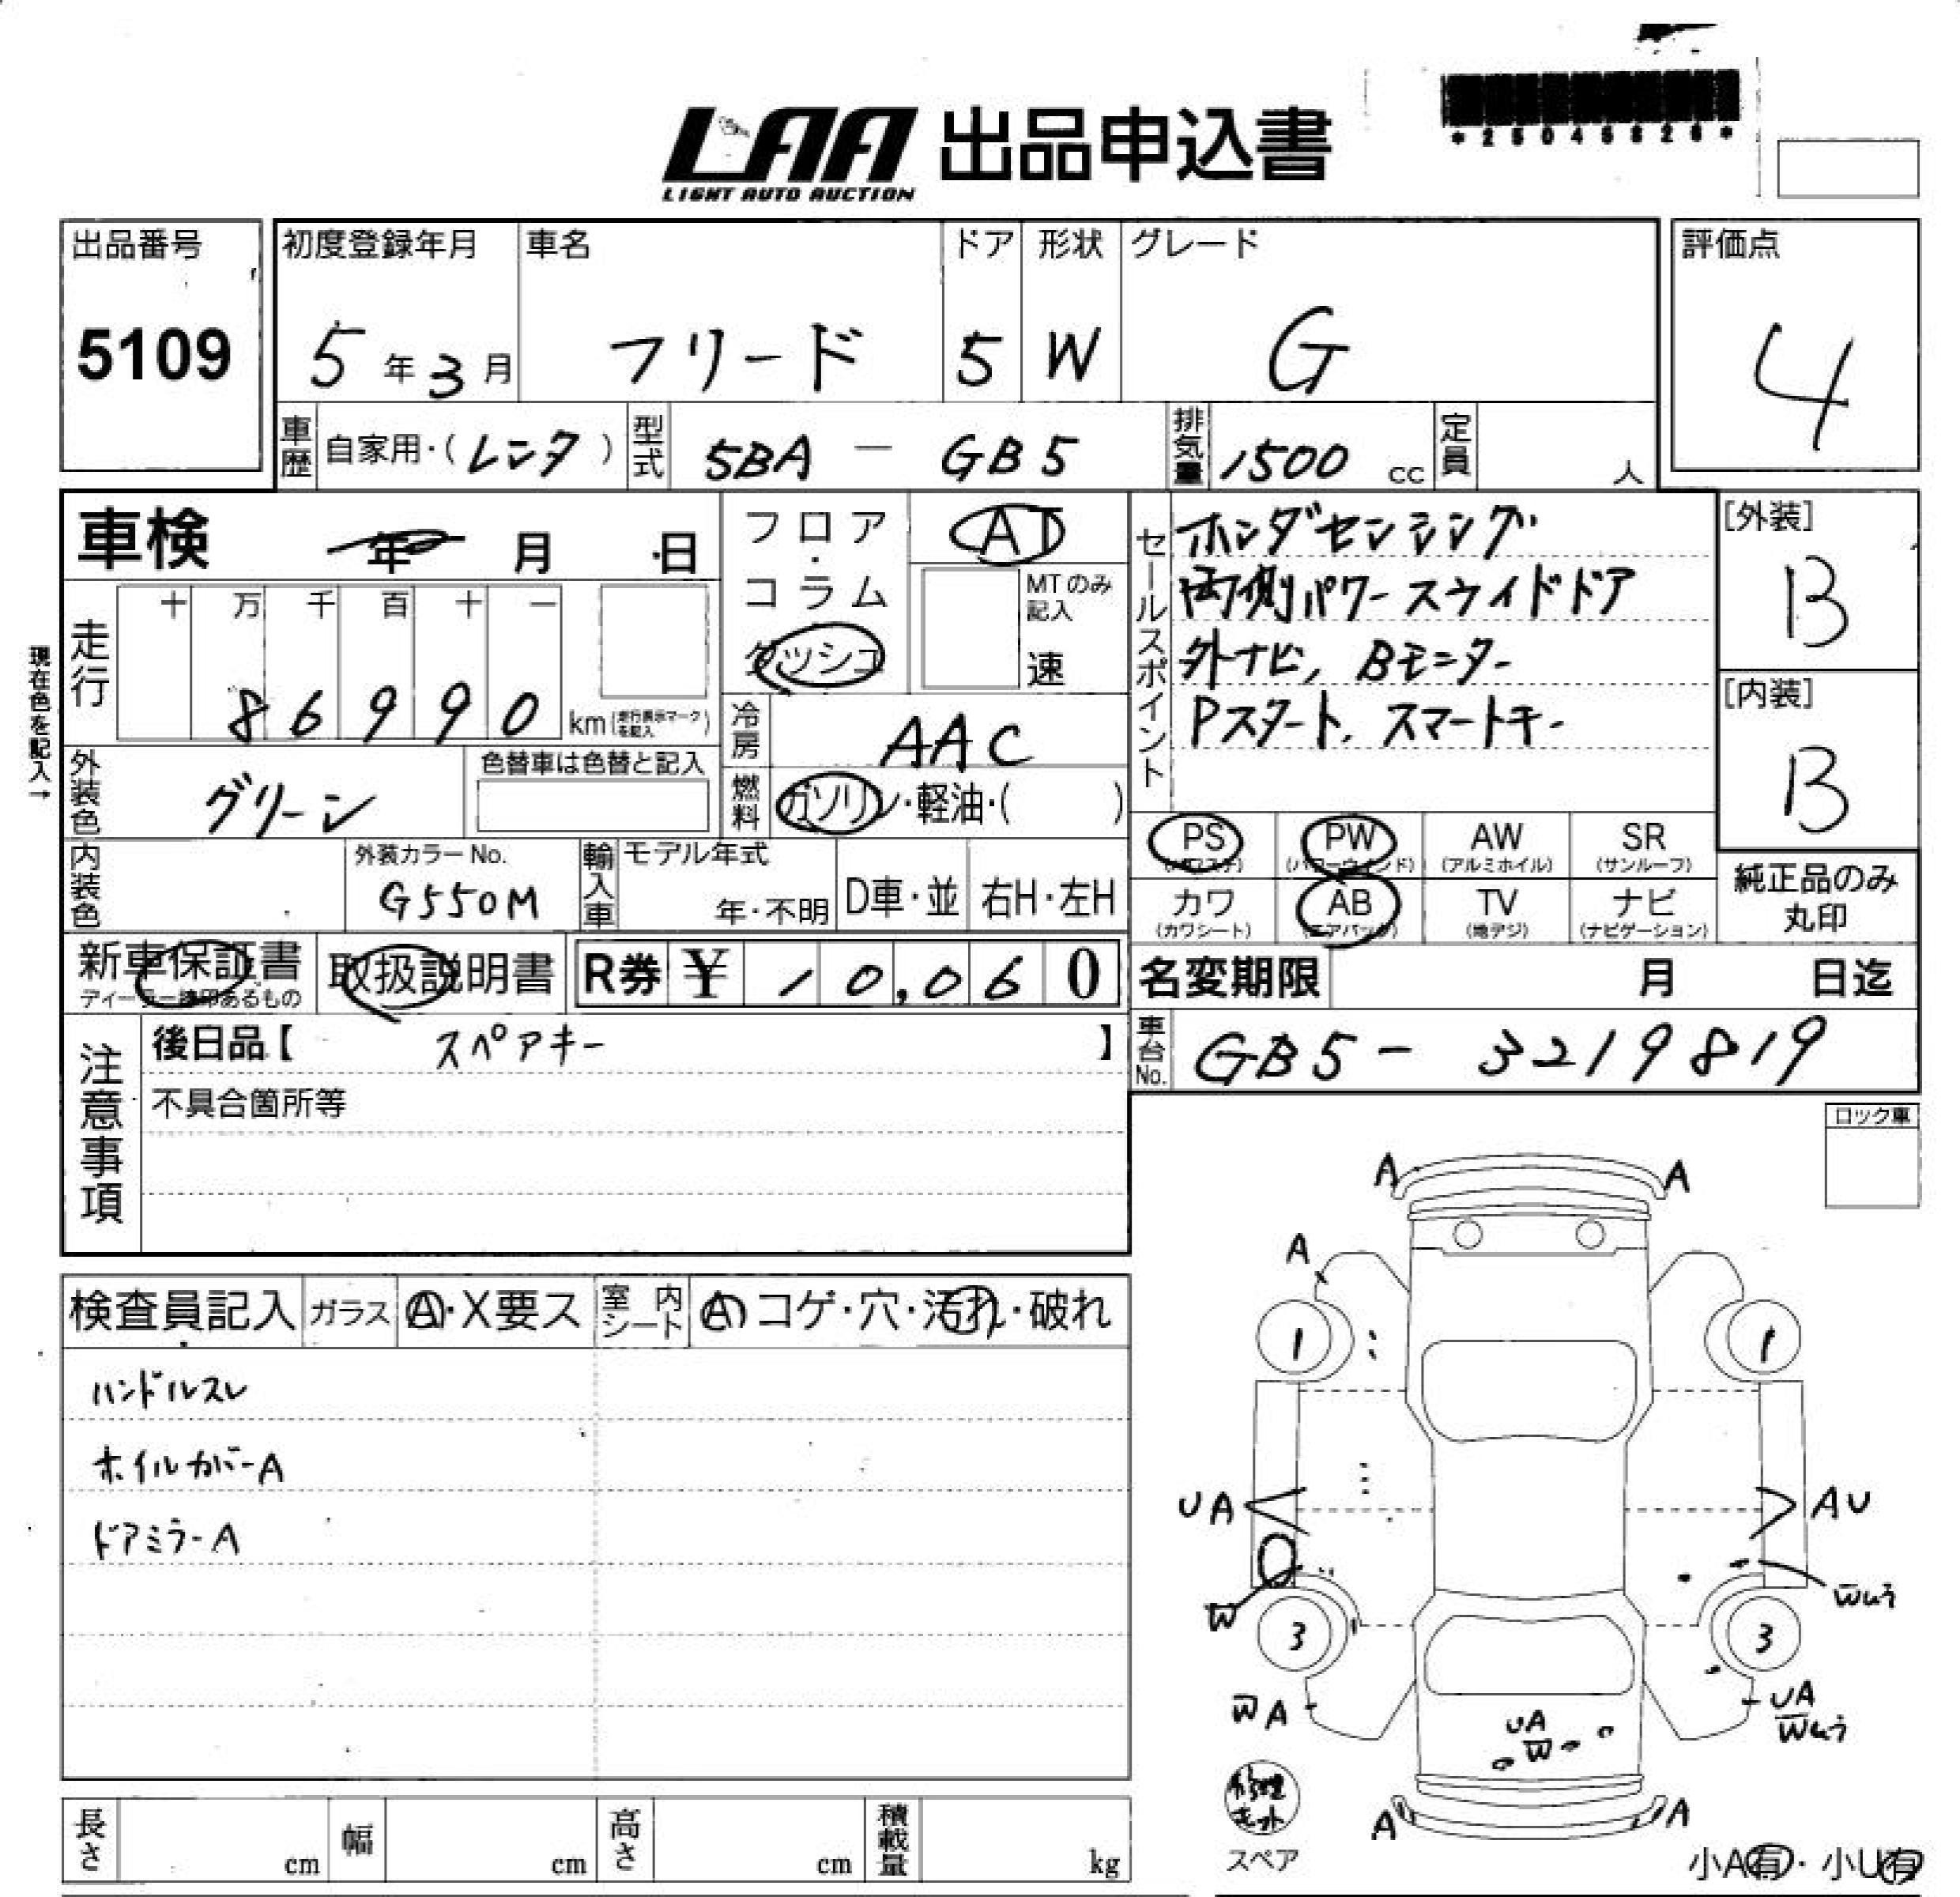 LAA 出品申込書
LIGHT AUTO AUCTION
*25046826*
出品番号 初度登録年月 車名 ドア 形状 グレード 評価点
5109 5年3月 フリード 5 W G 4
車歴 自家用・(レンタ) 型式 5BA - GB5 排気量 1500 cc 定員 人
車検 年 月 日
フロア・コラム ダッシュ
AT
MTのみ記入
速
セールスポイント
ホンダセンシング
両側パワースライドドア
外ナビ, Bモニター
Pスタート, スマートキー
[外装]
B
[内装]
B
現在色を記入→
走行 十 万 千 百 十 一
86990 km (走行表示マークを記入)
冷房 AAC
外装色 グリーン 色替車は色替と記入
燃料 ガソリン・軽油・( )
内装色 外装カラーNo. G550M
輸入車 モデル年式 年・不明 D車・並 右H・左H
PS PW AW SR
(パワステ) (パワーウインド) (アルミホイル) (サンルーフ)
カワ AB TV ナビ
(カワシート) (エアバック) (地デジ) (ナビゲーション)
純正品のみ
丸印
新車保証書 取扱説明書 R券 ¥ 10,060
ディーラー捺印あるもの
名変期限 月 日迄
車台No. GB5 - 3219819
注意事項
後日品【 スペアキー 】
不具合箇所等
ロック車
検査員記入 ガラス A・X要ス 室内シート A コゲ・穴・汚れ・破れ
ハンドルスレ
ホイルカバーA
ドアミラーA
A A
A
1 1
UA AU
W Wムラ
3 3
WA UA
Wムラ
UA
W
A A
修理キット
スペア
小A有・小U有
長さ cm 幅 cm 高さ cm 積載量 kg